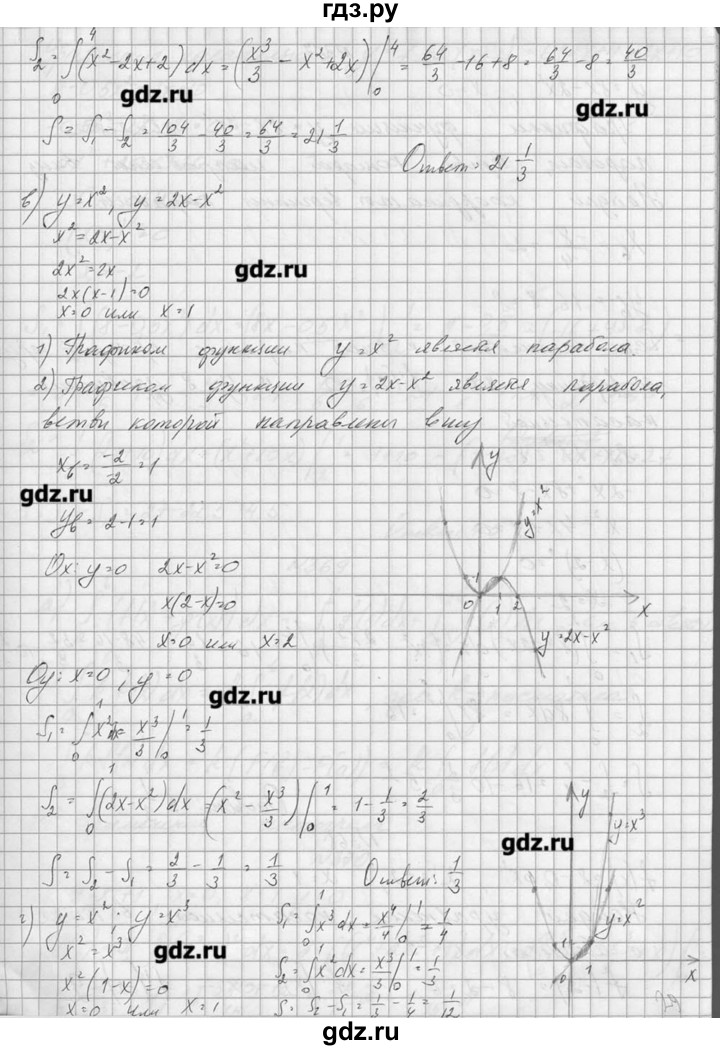 гдз.ру
S₂ = ∫₀⁴ (x² - 2x + 2) dx = (x³/3 - x² + 2x) |₀⁴ = 64/3 - 16 + 8 = 64/3 - 8 = 40/3
gdz.ru
gdz.ru
S = S₁ - S₂ = 104/3 - 40/3 = 64/3 = 21 1/3
Ответ = 21 1/3
в) y = x², y = 2x - x²
x² = 2x - x²
gdz.ru
2x² = 2x
2x(x-1) = 0
x = 0 или x = 1
1) Графиком функции y = x² является парабола.
2) Графиком функции y = 2x - x² является парабола,
ветви которой направлены вниз
xв = -2/-2 = 1
gdz.ru
yв = 2 - 1 = 1
Ox: y = 0 2x - x² = 0
x(2-x) = 0
x = 0 или x = 2
y
y = x²
1
0 1 2 x
y = 2x - x²
Oy: x = 0; y = 0
gdz.ru
S₁ = ∫₀¹ x² dx = x³/3 |₀¹ = 1/3
S₂ = ∫₀¹ (2x - x²) dx = (x² - x³/3) |₀¹ = 1 - 1/3 = 2/3
gdz.ru
S = S₂ - S₁ = 2/3 - 1/3 = 1/3 Ответ: 1/3
г) y = x²; y = x³
x² = x³
gdz.ru
x²(1-x) = 0
x = 0 или x = 1
S₁ = ∫₀¹ x³ dx = x⁴/4 |₀¹ = 1/4
S₂ = ∫₀¹ x² dx = x³/3 |₀¹ = 1/3
S = S₂ - S₁ = 1/3 - 1/4 = 1/12
y
y = x³
y = x²
1
0 1 x
gdz.ru